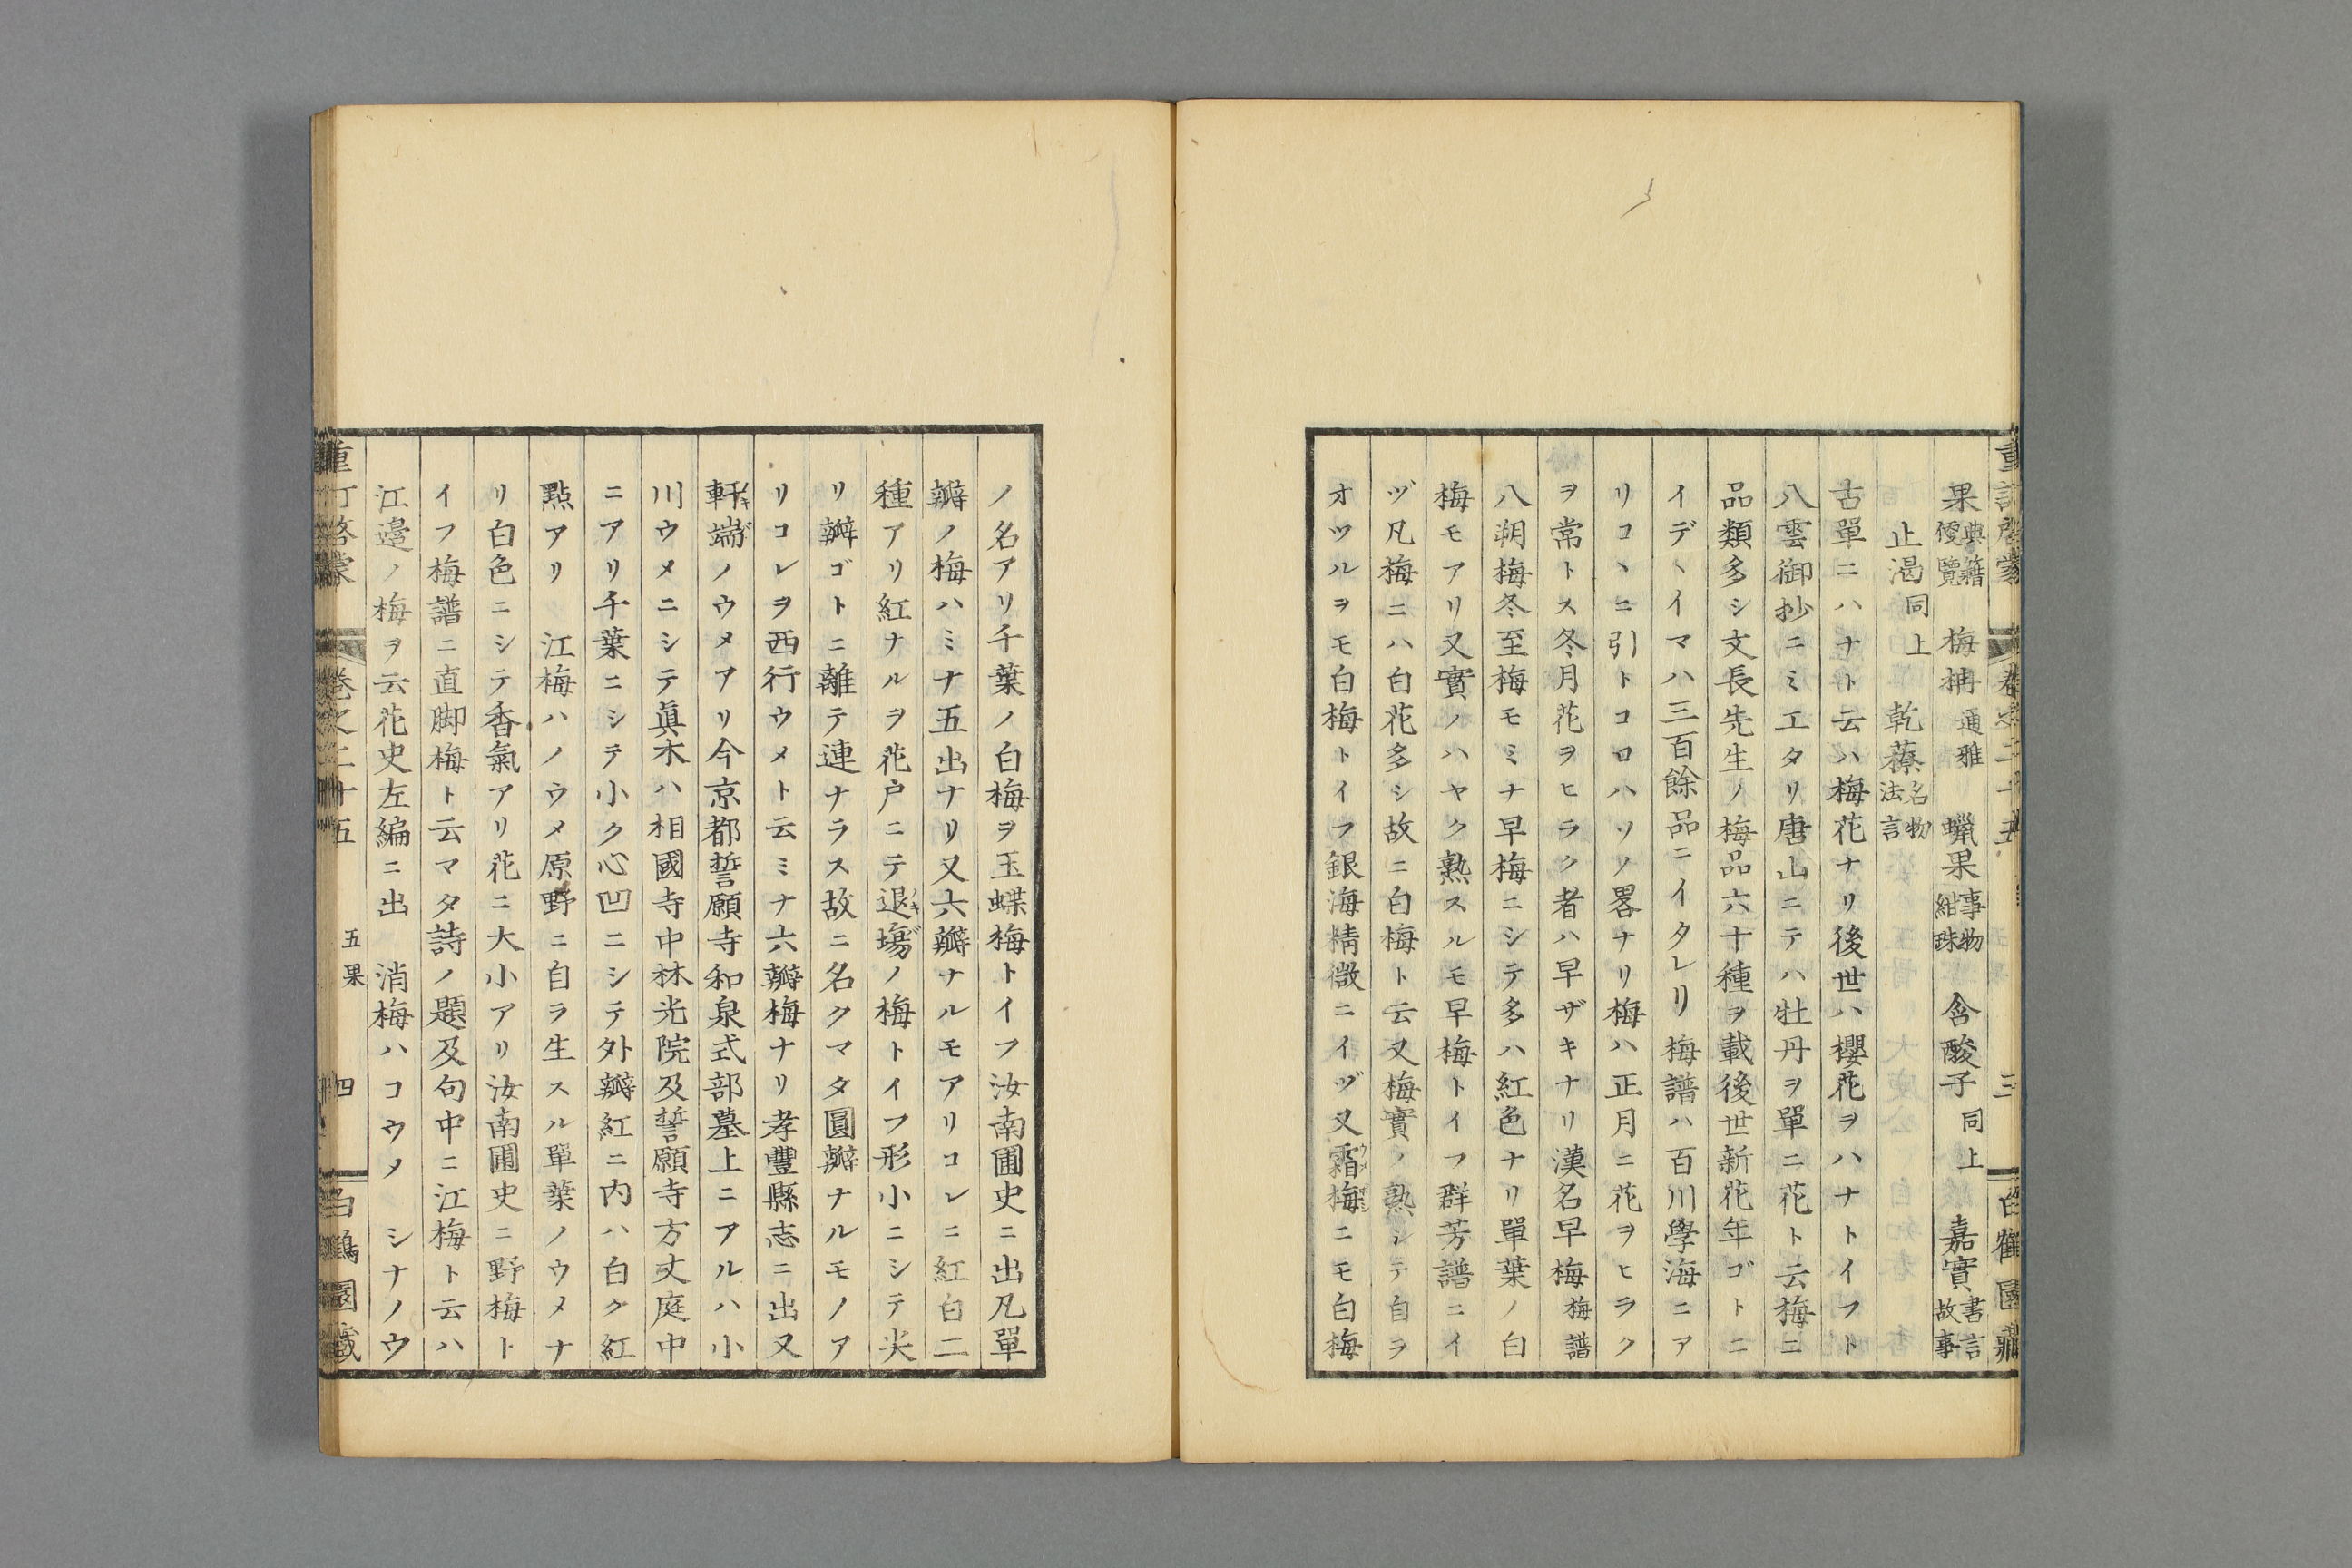 果典籍便覽　梅枏通雅　蠟果事物紺珠　含酸子同上　嘉實書言故事
止渴同上　乾䕩名物法言
古單ニハナト云ハ梅花ナリ後世ハ櫻花ヲハナトイフト
八雲御抄ニミエタリ唐山ニテハ牡丹ヲ單ニ花ト云梅ニ
品類多シ文長先生ノ梅品六十種ヲ載後世新花年ゴトニ
イデヽイマハ三百餘品ニイタレリ梅譜ハ百川學海ニア
リコヽニ引トコロハソノ畧ナリ梅ハ正月ニ花ヲヒラク
ヲ常トス冬月花ヲヒラク者ハ早ザキナリ漢名早梅梅譜
八朔梅冬至梅モミナ早梅ニシテ多ハ紅色ナリ單葉ノ白
梅モアリ又實ノハヤク熟スルモ早梅トイフ群芳譜ニイ
ヅ凡梅ニハ白花多シ故ニ白梅ト云又梅實ノ熟シテ自ラ
オツルヲモ白梅トイフ銀海精微ニイヅ又霜梅ニモ白梅
ノ名アリ千葉ノ白梅ヲ玉蝶梅トイフ汝南圃史ニ出凡單
瓣ノ梅ハミナ五出ナリ又六瓣ナルモアリコレニ紅白二
種アリ紅ナルヲ花戸ニテ退塲ノ梅トイフ形小ニシテ尖
リ瓣ゴトニ離テ連ナラス故ニ名クマタ圓瓣ナルモノア
リコレヲ西行ウメト云ミナ六瓣梅ナリ孝豐縣志ニ出又
軒端ノウメアリ今京都誓願寺和泉式部墓上ニアルハ小
川ウメニシテ眞木ハ相國寺中林光院及誓願寺方丈庭中
ニアリ千葉ニシテ小ク心凹ニシテ外瓣紅ニ内ハ白ク紅
點アリ　江梅ハノウメ原野ニ自ラ生スル單葉ノウメナ
リ白色ニシテ香氣アリ花ニ大小アリ汝南圃史ニ野梅ト
イフ梅譜ニ直脚梅ト云マタ詩ノ題及句中ニ江梅ト云ハ
江邉ノ梅ヲ云花史左編ニ出　消梅ハコウメ　シナノウ
重訂啓蒙　卷之二十五　五果　四　白鶴園藏